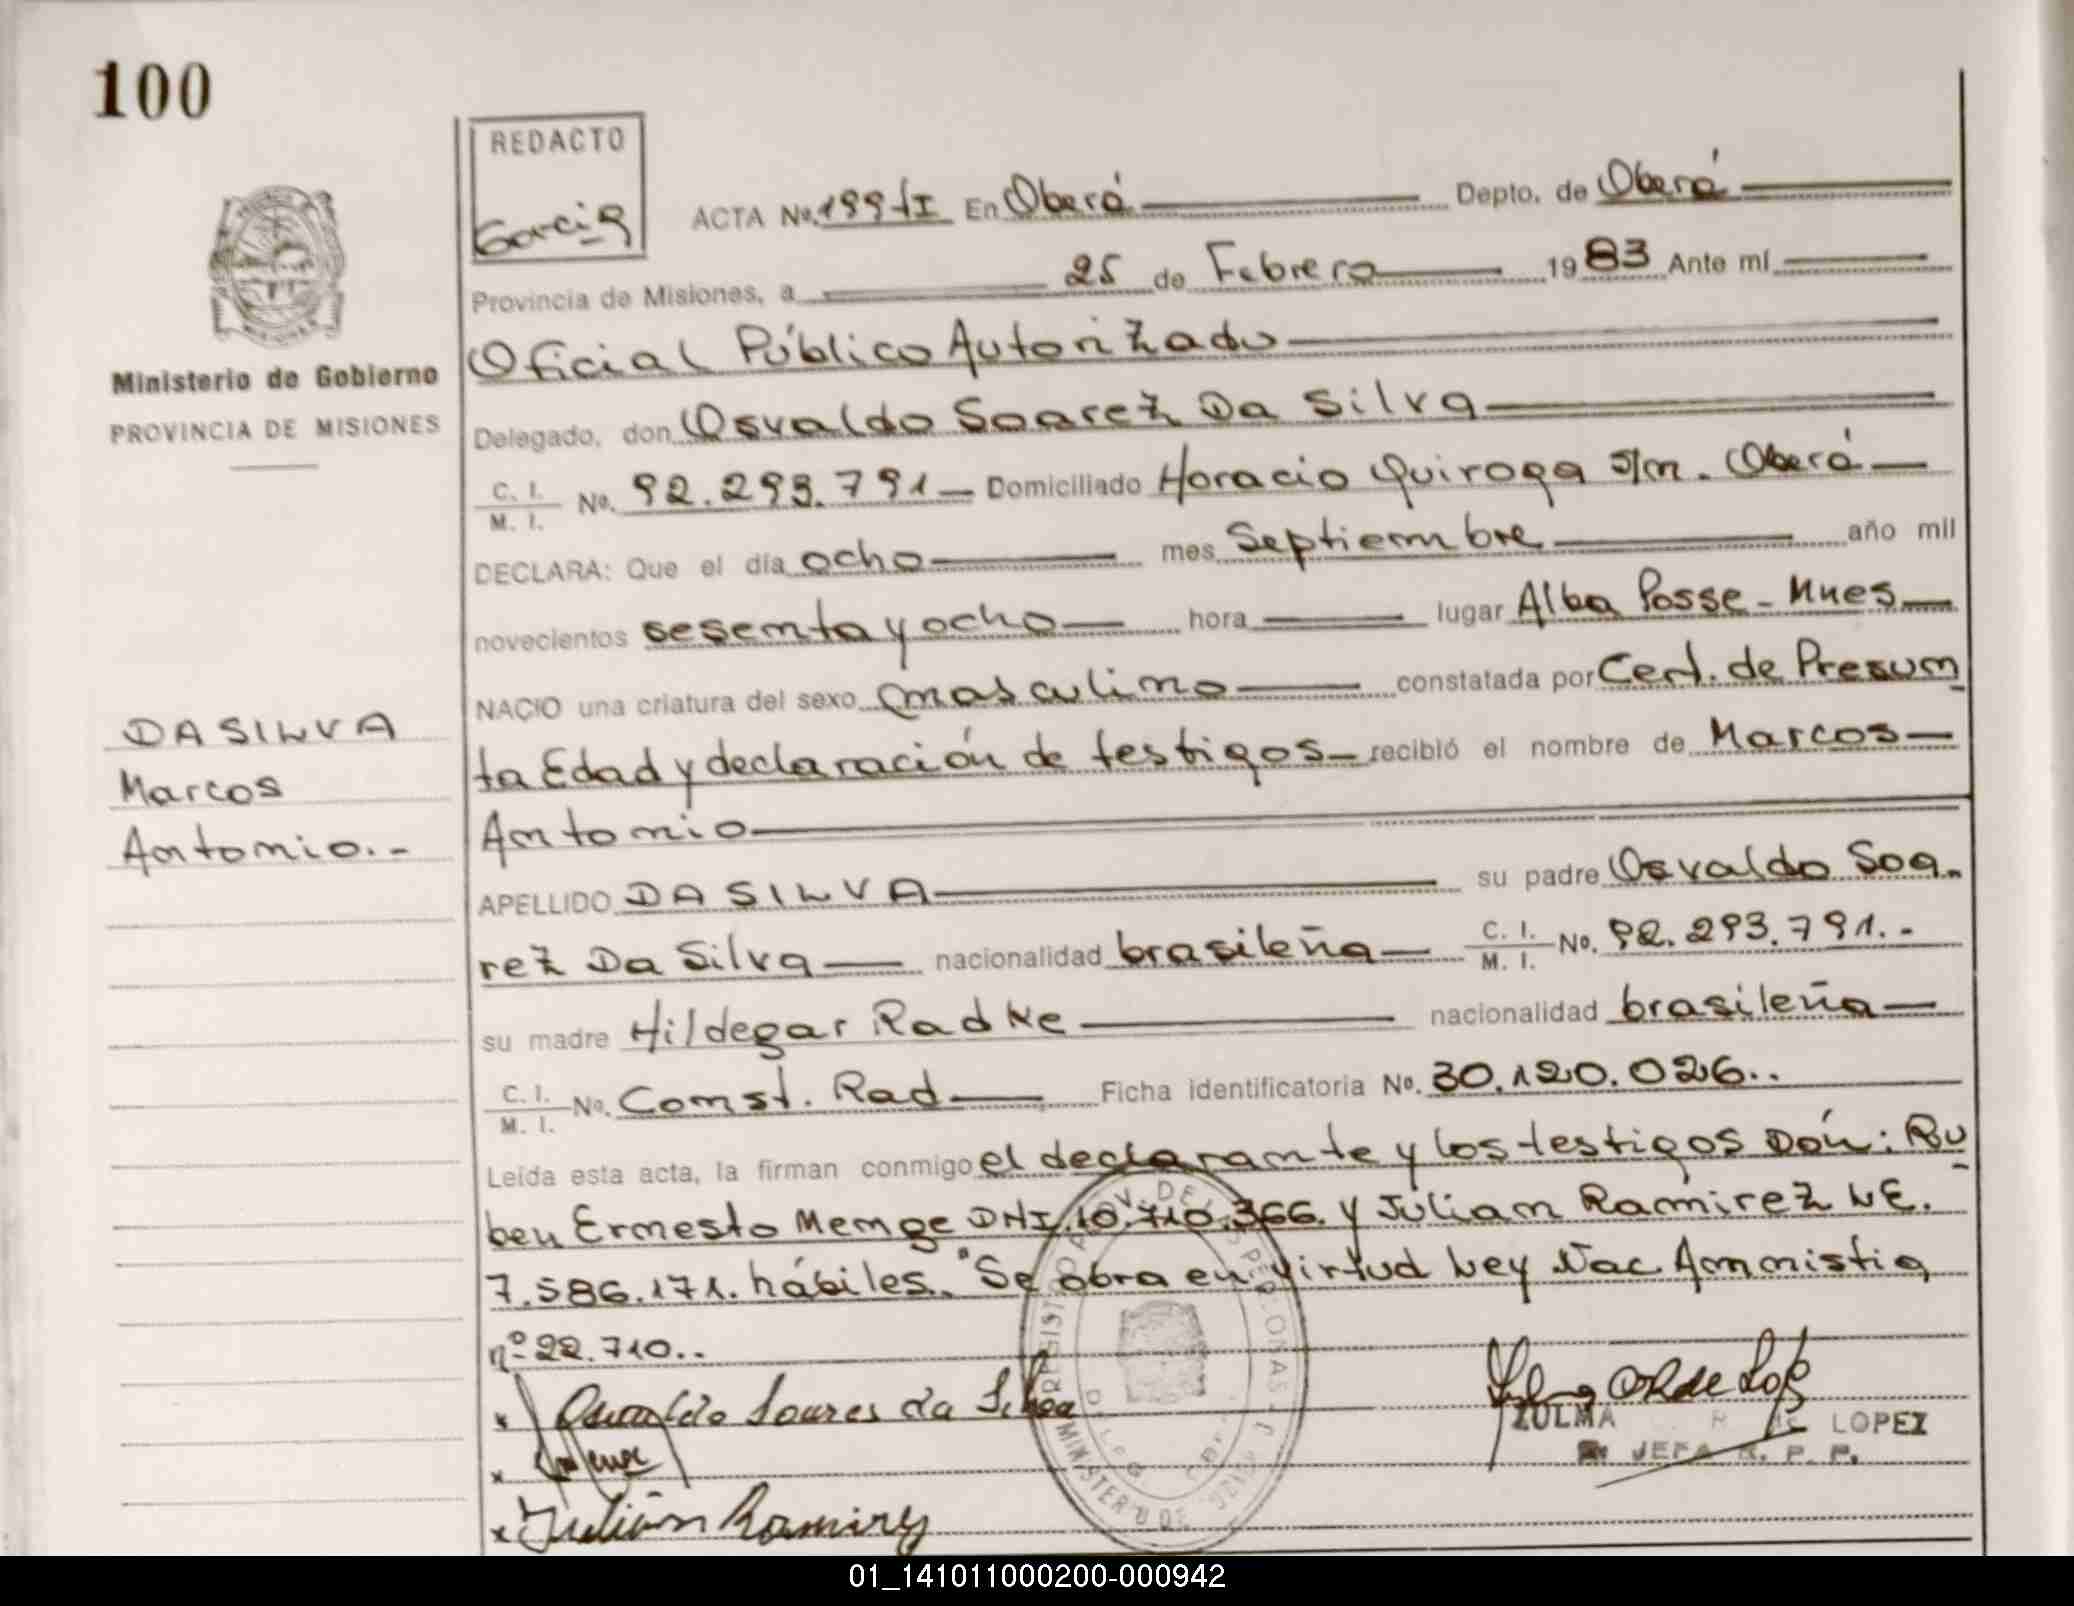 100
REDACTO
Garcia
ACTA No. 199-fI En Oberá Depto. de Oberá
Provincia de Misiones, a 25 de Febrero 1983 Ante mí
Oficial Público Autorizado
Ministerio de Gobierno
PROVINCIA DE MISIONES
Delegado, don Osvaldo Soarez Da Silva
C. I. / M. I. No. 92.293.791 Domiciliado Horacio Quiroga s/n. Oberá
DECLARA: Que el día ocho mes Septiembre año mil
novecientos sesenta y ocho hora lugar Alba Posse - Mnes
NACIO una criatura del sexo masculino constatada por Cert. de Presun
ta Edad y declaración de testigos recibió el nombre de Marcos
Antonio
DA SILVA
Marcos
Antonio.-
APELLIDO DA SILVA su padre Osvaldo Soa-
rez Da Silva nacionalidad brasileña C. I. / M. I. No. 92.293.791.-
su madre Hildegar Radke nacionalidad brasileña
C. I. / M. I. No. Const. Rad Ficha identificatoria No. 30.120.026..
Leída esta acta, la firman conmigo el declarante y los testigos Don: Ru
ben Ernesto Menge DNI. 10.710.366. y Julian Ramirez LE.
7.586.171. hábiles. "Se obra en virtud Ley Nac Amnistia
nº 22.710..
x Osvaldo Soares da Silva
x Menge
x Julián Ramirez
ZULMA R de LOPEZ
JEFA R. P. P.
01_141011000200-000942